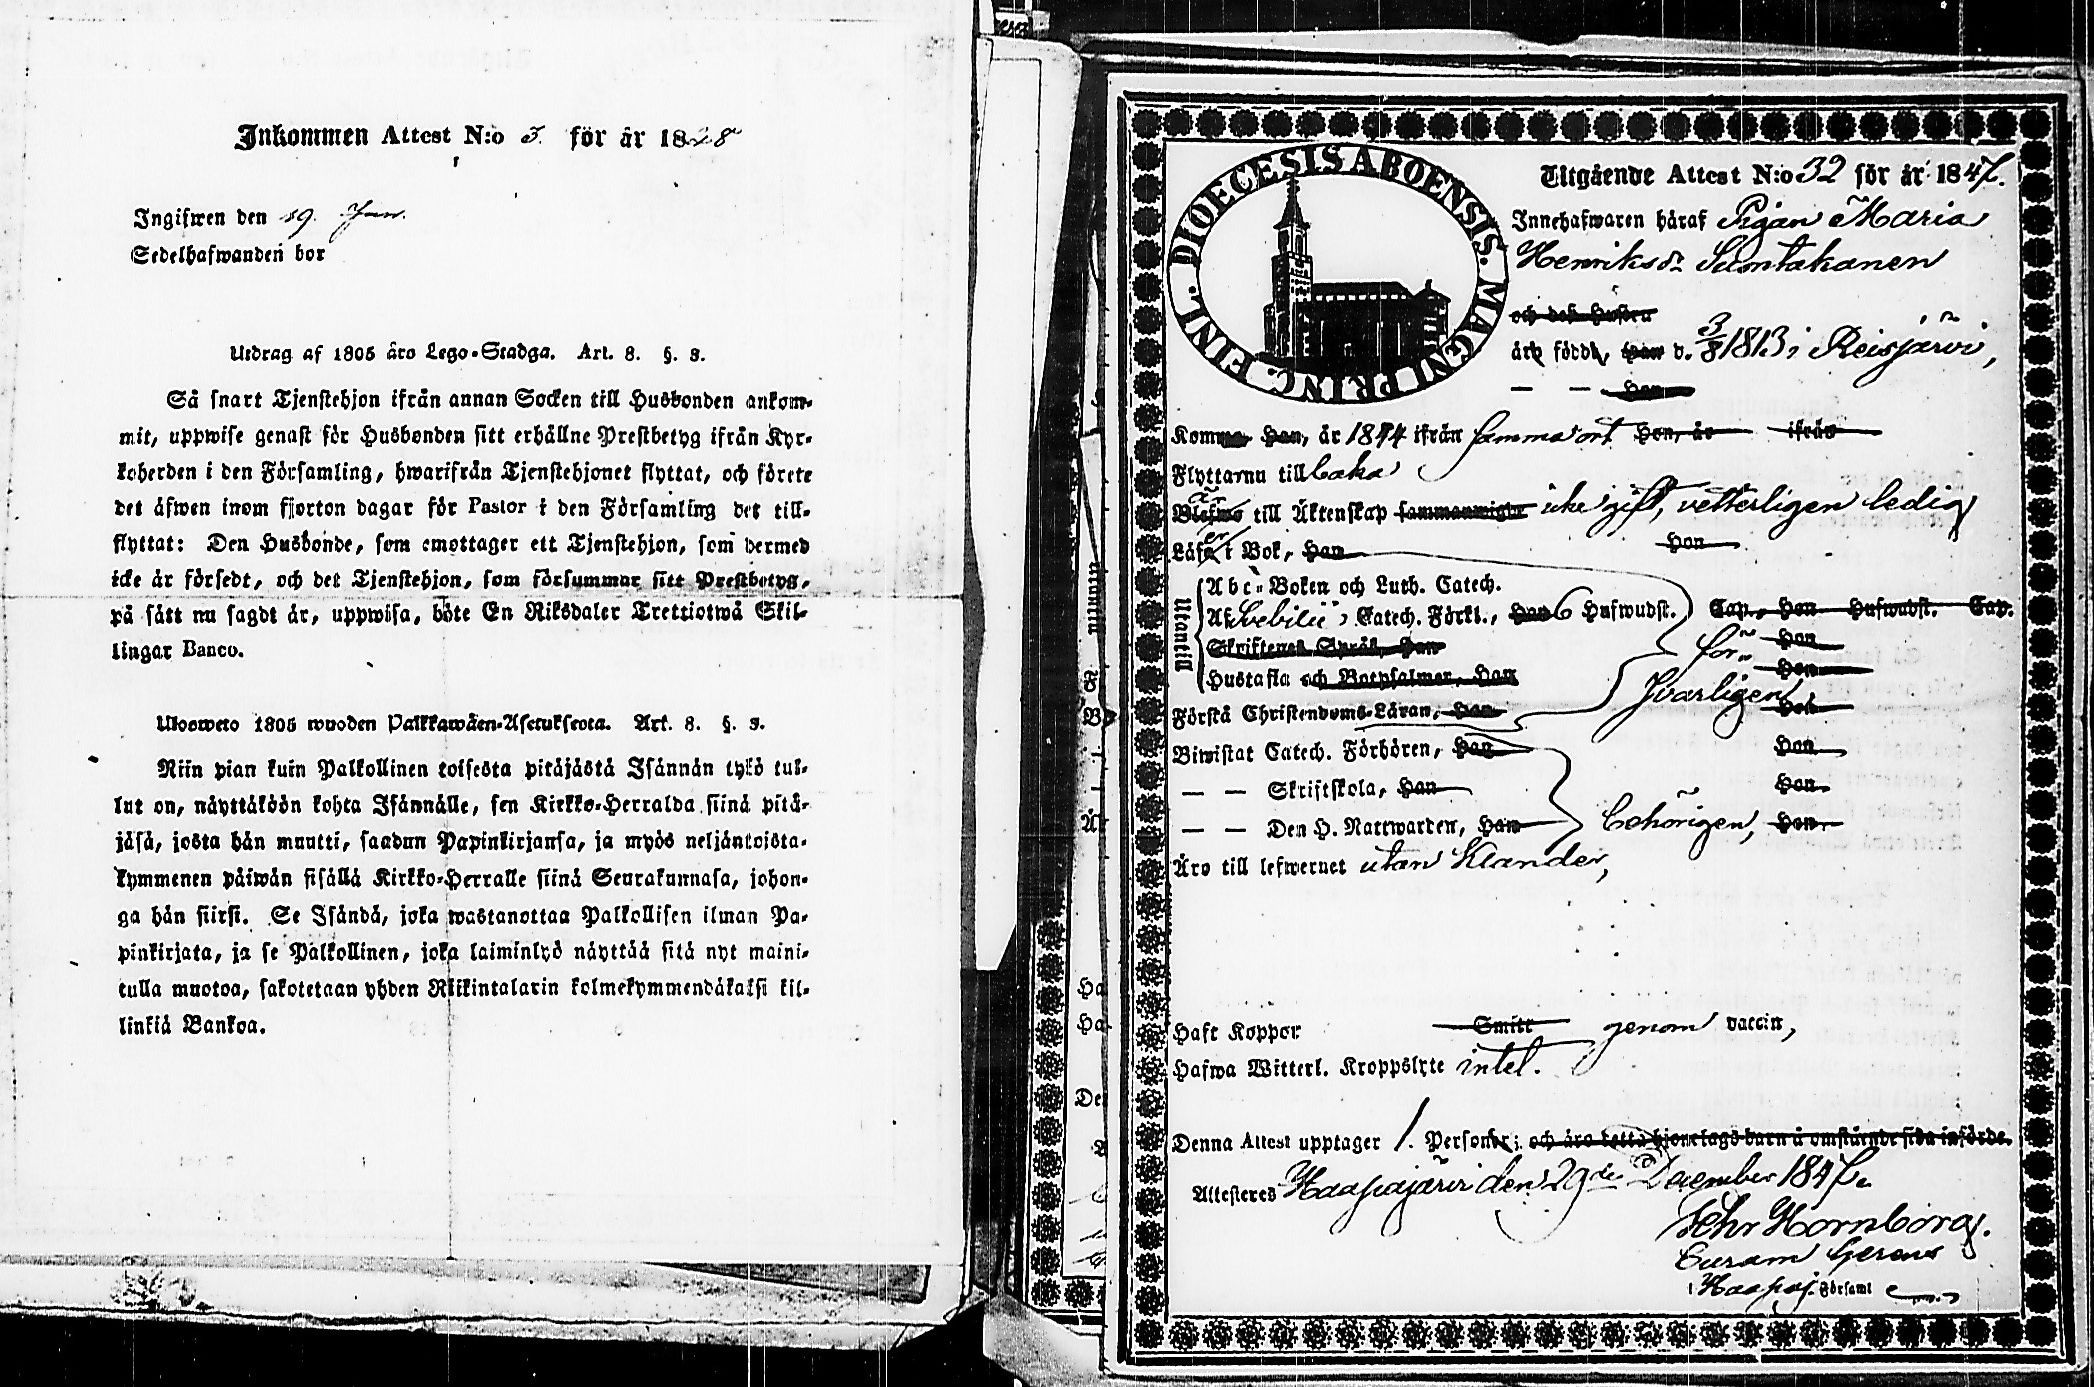 Inkommen Attest N:o 3. för år 1828
Ingifwen den 19. Jan.
Sedelhafwanden bor
Utdrag af 1805 års Lego-Stadga. Art. 8. §. 3.
Så snart Tjenstehjon ifrån annan Socken till Husbonden ankom-
mit, uppwise genast för Husbonden sitt erhållne Prestbetyg ifrån Kyr-
koherden i den Församling, hwarifrån Tjenstehjonet flyttat, och förete
det äfwen inom fjorton dagar för Pastor i den Församling det till-
flyttat: Den Husbonde, som emottager ett Tjenstehjon, som dermed
icke är försedt, och det Tjenstehjon, som försummar sitt Prestbetyg,
på sätt nu sagdt är, uppwisa, böte En Riksdaler Trettiotwå Skil-
lingar Banco.
Ulosweto 1805 wuoden Palkkawäen-Asetuksesta. Art. 8. §. 3.
Niin pian kuin Palkollinen toisesta pitäjästä Isännän tykö tul-
lut on, näyttäköön kohta Isännälle, sen Kirkko-Herralda siinä pitä-
jäsä, josta hän muutti, saadun Papinkirjansa, ja myös neljäntoista-
kymmenen päiwän sisällä Kirkko-Herralle siinä Seurakunnasa, johon-
ga hän siirsi. Se Isändä, joka wastanottaa Palkollisen ilman Pa-
pinkirjata, ja se Palkollinen, joka laiminlyö näyttää sitä nyt maini-
tulla muotoa, sakotetaan yhden Riikintalarin kolmekymmendäkaksi kil-
linkiä Bankoa.
DIOECESIS ABOENSIS. MAGNI PRINC. FINL.
Utgående Attest N:o 32 för år 1847.
Innehafwaren häraf Pigan Maria
Henriksdr Suntakanen
och dess Hustru
äro födde, Han d. 3/8 1813 i Reisjärvi,
— — Hon
Komne Han, år 1844 ifrån samma ort Hon, år ifrån
Flyttarnu till baka
är
Blefwo till Äktenskap sammanwigde icke gift, vetterligen ledig
Läsa i Bok, Han Hon
Utantill
Abc-Boken och Luth. Catech.
Af Svebilii Catech. Förkl., Han 6 Hufwudst. Cap., Hon Hufwudst. Cap.
Skriftenes Språk, Han Hon
för-
Hustafla och Botpsalmer, Han Hon
svarligen,
Förstå Christendoms-Läran, Han Hon
Biwistat Catech. Förhören, Han Hon
— — Skriftskola, Han Hon
— — Den H. Nattwarden, Han behörigen, Hon
Äro till lefwernet utan klander,
Haft Koppor Smitt genom vaccin,
Hafwa Witterl. Kroppslyte intet.
Denna Attest upptager 1. Personer; och äro detta hjonelags barn å omstående sida införde.
Attesteres Haapajärvi den 29de December 1847.
Fehr Hornborg.
Curam Gerens
i Haapaj. Församl